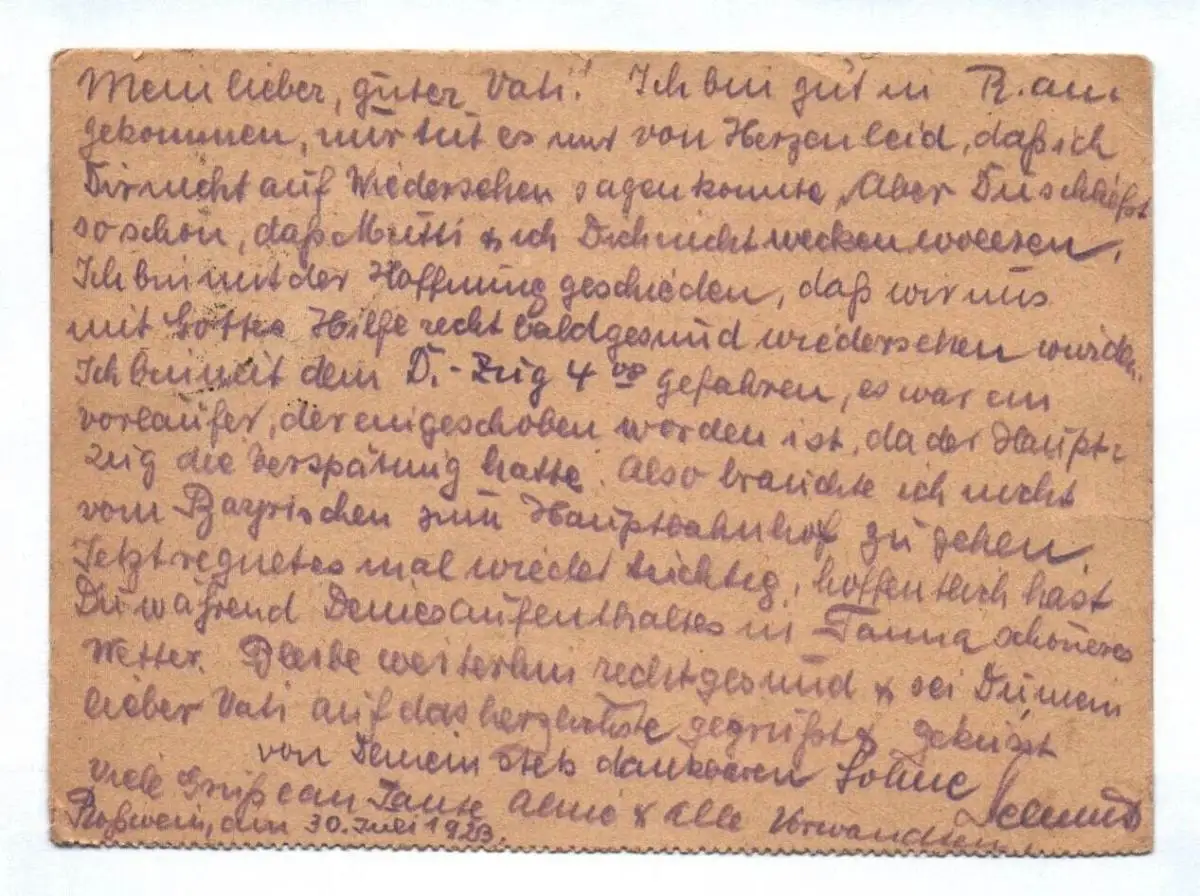 Mein lieber, guter Vati! Ich bin gut in R. an-
gekommen, nur tut es mir von Herzen leid, daß ich
Dir nicht auf Wiedersehen sagen konnte, Aber Du schliefst
so schön, daß Mutti & ich Dich nicht wecken wollten.
Ich bin mit der Hoffnung geschieden, daß wir uns
mit Gottes Hilfe recht bald gesund wiedersehen würden.
Ich bin mit dem D.-Zug 4 00 gefahren, es war ein
Vorläufer, der eingeschoben worden ist, da der Haupt-
zug die Verspätung hatte. Also brauchte ich nicht
vom Bayrischen zum Hauptbahnhof zu gehen.
Jetzt regnet es mal wieder tüchtig, hoffentlich hast
Du während Deines Aufenthaltes in Tanna schöneres
Wetter. Bleibe weiterhin recht gesund & sei Du mein
lieber Vati auf das herzlichste gegrüßt & geküsst
von Deinem stets dankbaren Sohne
Viele Grüße an Tante & alle Verwandten.
Roßwein, den 30. Juli 1923.